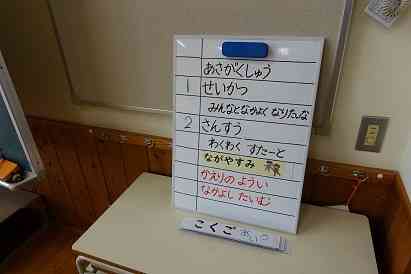 あさがくしゅう
1 せいかつ
みんなとなかよく なりたいな
2 さんすう
わくわく すたーと
ながやすみ
かえりの ようい
なかよし たいむ
こくご